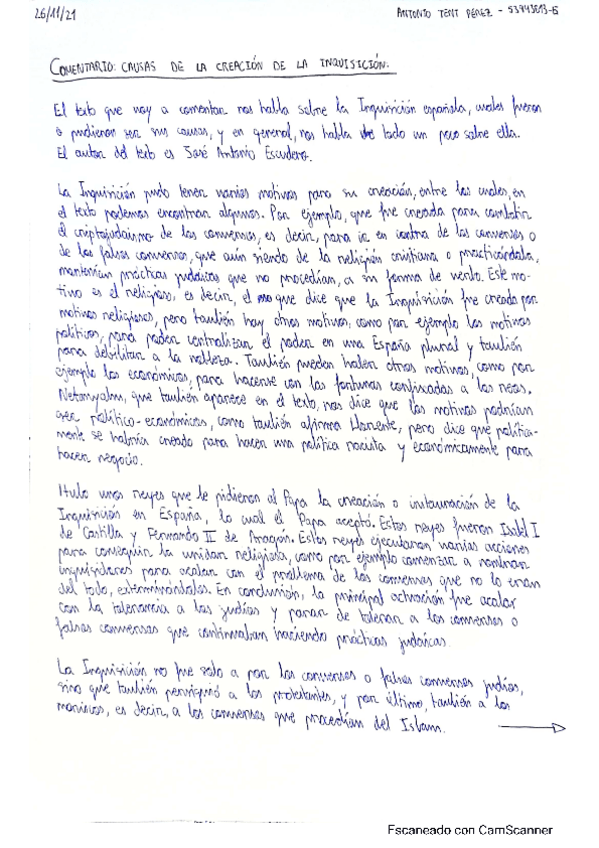 26/11/21
ANTONIO TENT PÉREZ -
COMENTARIO: CAUSAS DE LA CREACIÓN DE LA INQUISICIÓN.
El texto que voy a comentar nos habla sobre la Inquisición española, cuales fueron
o pudieron ser sus causas, y en general, nos habla de todo un poco sobre ella.
El autor del texto es José Antonio Escudero.
La Inquisición pudo tener varios motivos para su creación, entre los cuales, en
el texto podemos encontrar algunos. Por ejemplo, que fue creada para combatir
el criptojudaísmo de los conversos, es decir, para ir en contra de los conversos o
de los falsos conversos, que aún siendo de la religión cristiana o practicándola,
mantenían prácticas judaicas que no procedían, a su forma de verlo. Este mo-
tivo es el religioso, es decir, el que dice que la Inquisición fue creada por
motivos religiosos, pero también hay otros motivos, como por ejemplo los motivos
políticos, para poder centralizar el poder en una España plural y también
para debilitar a la nobleza. También pueden haber otros motivos, como por
ejemplo los económicos, para hacerse con las fortunas confiscadas a los reos.
Netanyahu, que también aparece en el texto, nos dice que los motivos podrían
ser político-económicos, como también afirma Llorente, pero dice que política-
mente se habría creado para hacer una política racista y económicamente para
hacer negocio.
Hubo unos reyes que le pidieron al Papa la creación o instauración de la
Inquisición en España, lo cual el Papa aceptó. Estos reyes fueron Isabel I
de Castilla y Fernando II de Aragón. Estos reyes ejecutaron varias acciones
para conseguir la unidad religiosa, como por ejemplo comenzar a nombrar
inquisidores para acabar con el problema de los conversos que no lo eran
del todo, exterminándolos. En conclusión, la principal actuación fue acabar
con la tolerancia a los judíos y parar de tolerar a los conversos o
falsos conversos que continuaban haciendo prácticas judaicas.
La Inquisición no fue solo a por los conversos o falsos conversos judíos,
sino que también persiguió a los protestantes, y por último, también a los
moriscos, es decir, a los conversos que procedían del Islam.
Escaneado con CamScanner